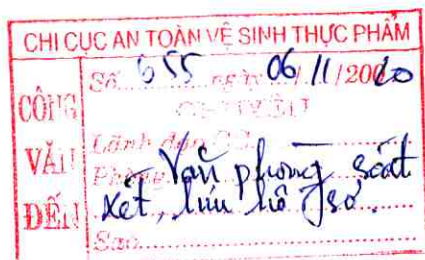 CHI CỤC AN TOÀN VỆ SINH THỰC PHẨM
CÔNG VĂN ĐẾN
Số 655 ngày 06/11/2020
CHUYỂN
Lãnh đạo CC
Phòng
Văn phòng soát
xét, lưu hồ sơ.
Sao